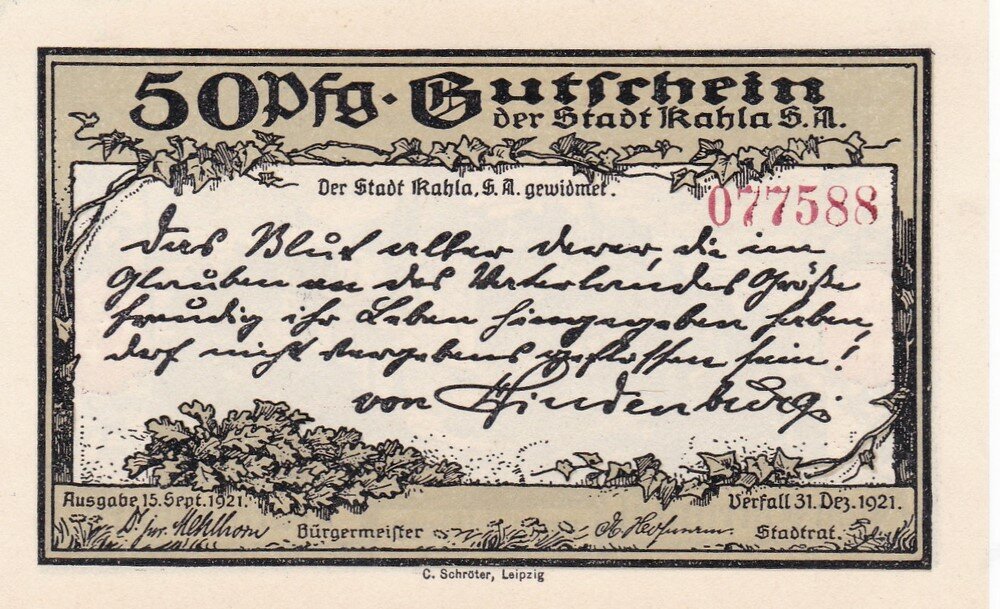 50 Pfg. Gutschein
der Stadt Kahla S.A.
Der Stadt Kahla, S.A. gewidmet.
077588
Das Blut aller derer, die im
Glauben an des Vaterlandes Größe
freudig ihr Leben hingegeben haben,
darf nicht vergebens geflossen sein!
von Hindenburg.
Ausgabe 15. Sept. 1921.
Verfall 31. Dez. 1921.
Dr. jur. Mehlhorn Bürgermeister
Stadtrat.
C. Schröter, Leipzig